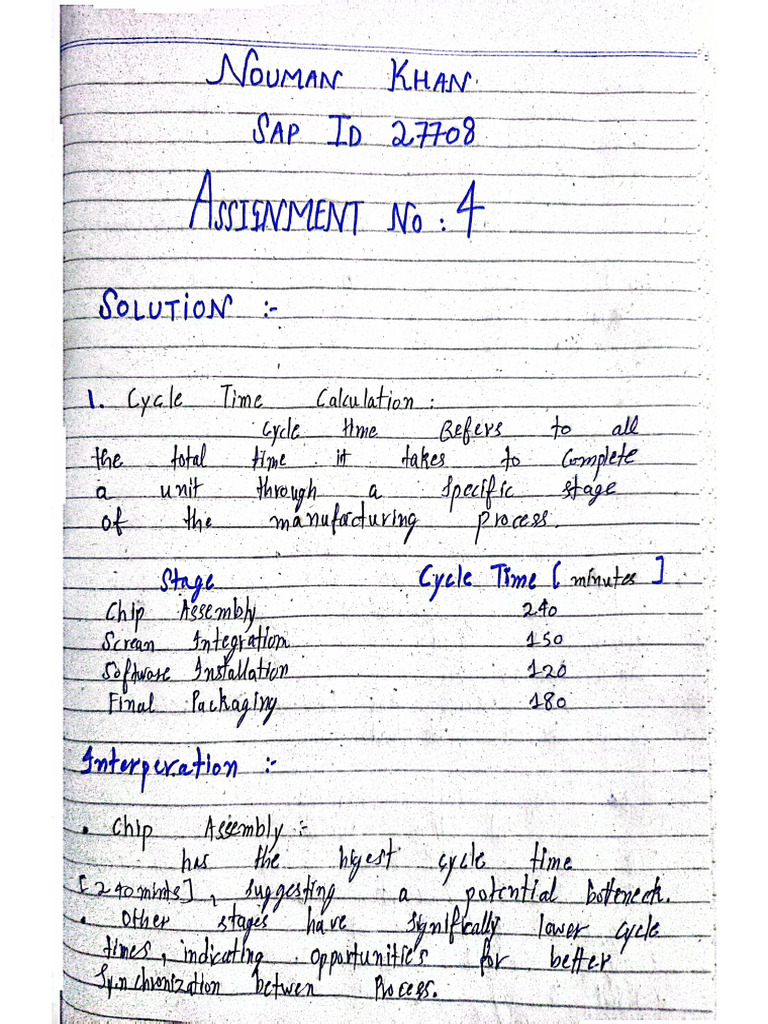 NOUMAN KHAN.
SAP ID 27708
ASSIGNMENT NO : 4
SOLUTION :-
1. Cycle Time Calculation :
Cycle time Refers to all
the total time it takes to Complete
a unit through a specific stage
of the manufacturing process.
Stage Cycle Time [ minutes ]
Chip Assembly 240
Screan Integration 150
Software Installation 120
Final Packaging 180
Interperation :-
• Chip Assembly :-
has the higest cycle time
[240 mints], suggesting a potential botteneck.
• Other stages have significally lower cycle
times, indicating opportunities for better
Synchronization betwen Process.